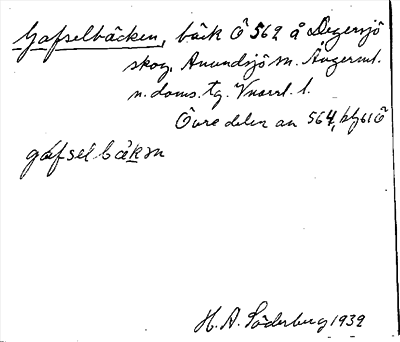 Gafselbäcken, bäck Ö 562 å Degersjö
skog, Anundsjö sn. Ångerml.
n. doms. tg. Vnorrl. l.
Övre delen av 564, bfg 61 Ö
gáfsel bä̀kɳ
H. A. Söderberg 1939